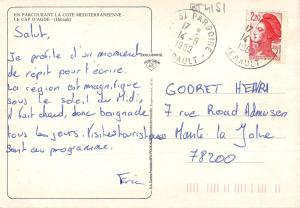 EN PARCOURANT LA COTE MEDITERRANEENNE -
LE CAP D'AGDE - (Hérault)
Salut,
Je profite d'un moment
de répit pour t'écrire.
La région est magnifique
sous le soleil du Midi,
il fait chaud, donc baignade
tous les jours. Visites touristiques
sont au programme.
Eric
ST PARGOIRE
17 H
14-6
1988
HERAULT
2,20
GODRET HENRI
7 rue Road Admusen
Mante la Jolie
78200